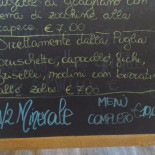 di Gragnano con
crema di zucchine, alla
capese € 7,00
Direttamente dalla Puglia
bruschette, capocollo, fichi,
taralli, modini con burrata
allo zolre €7,00
1/2 Minerale
MENÙ
COMPLETO €